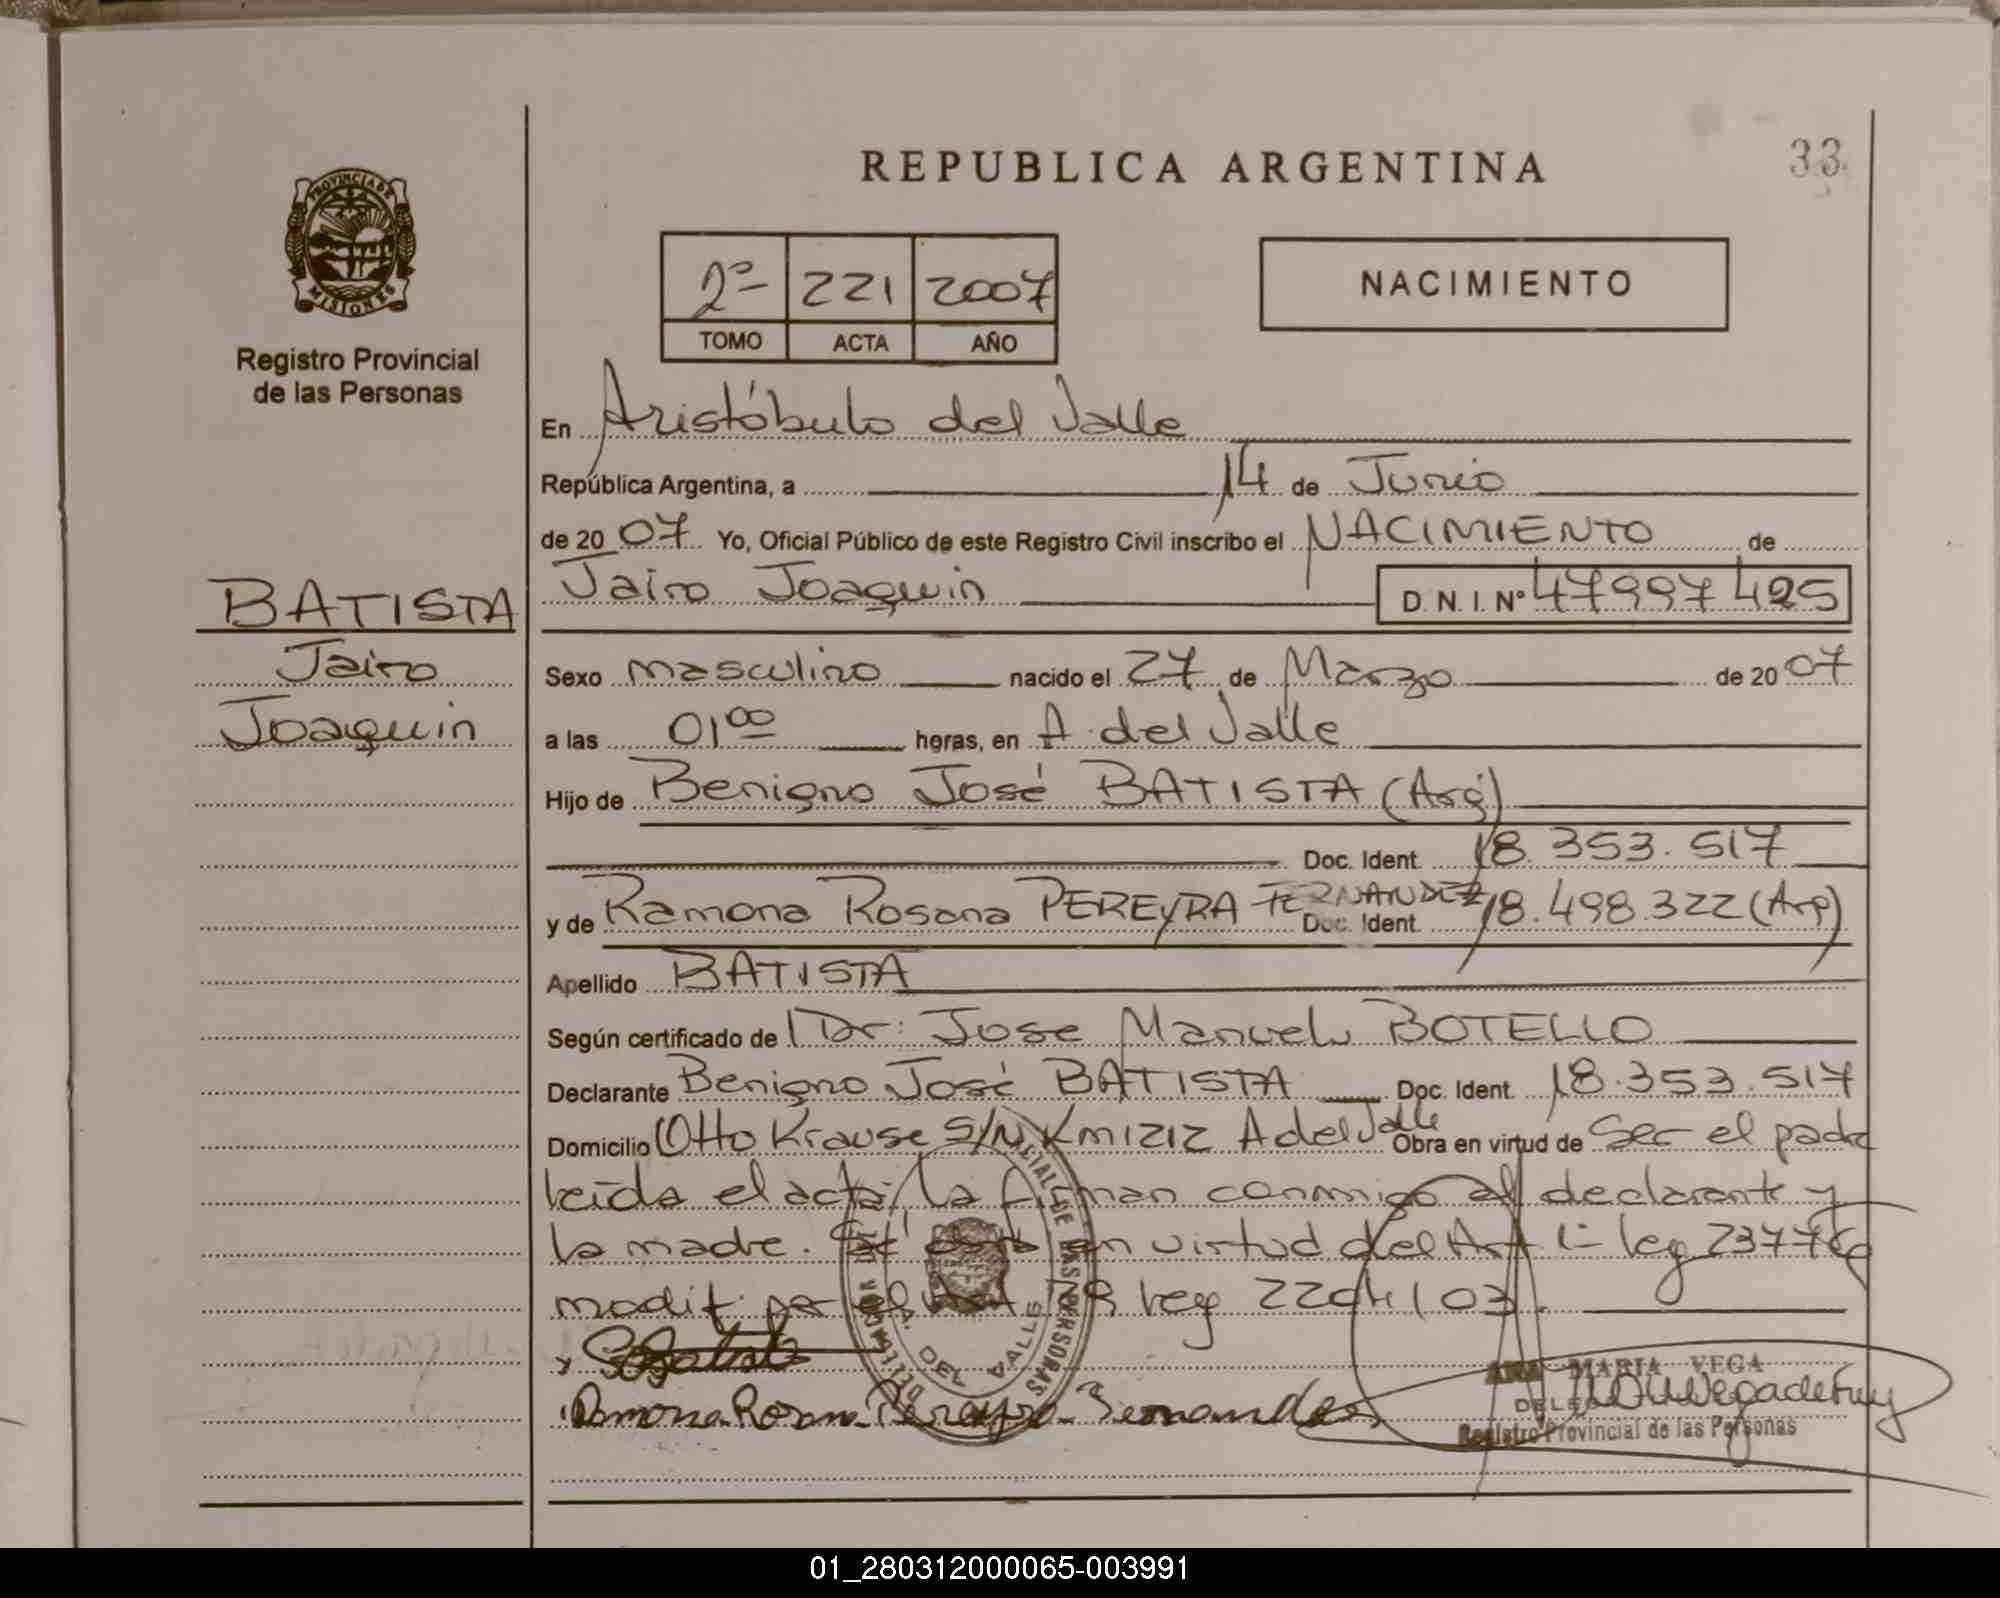 REPUBLICA ARGENTINA
33
PROVINCIA DE
MISIONES
Registro Provincial
de las Personas
2º 221 2007
TOMO ACTA AÑO
NACIMIENTO
En Aristóbulo del Valle
República Argentina, a 14 de Junio
de 20 07 Yo, Oficial Público de este Registro Civil inscribo el NACIMIENTO de
Jairo Joaquin D.N.I. Nº 47997425
BATISTA
Jairo
Joaquin
Sexo masculino nacido el 27 de Marzo de 20 07
a las 01⁰⁰ horas, en A. del Valle
Hijo de Benigno José BATISTA (Arg)
Doc. Ident. 18.353.517
y de Ramona Rosana PEREYRA FERNANDEZ Doc. Ident. 18.498.322 (Arg)
Apellido BATISTA
Según certificado de Dr: Jose Manuel BOTELLO
Declarante Benigno José BATISTA Doc. Ident. 18.353.517
Domicilio Otto Krause S/N Km 1212 A del Valle Obra en virtud de Ser el padre
leída el acta, la firman conmigo el declarante y
la madre. en virtud del Art 1º ley
modif. por el Art ley 2204/03.
Ramona Rosana Pereyra Fernandes
A. DEL VALLE
ANA MARIA VEGA
Registro Provincial de las Personas
01_280312000065-003991